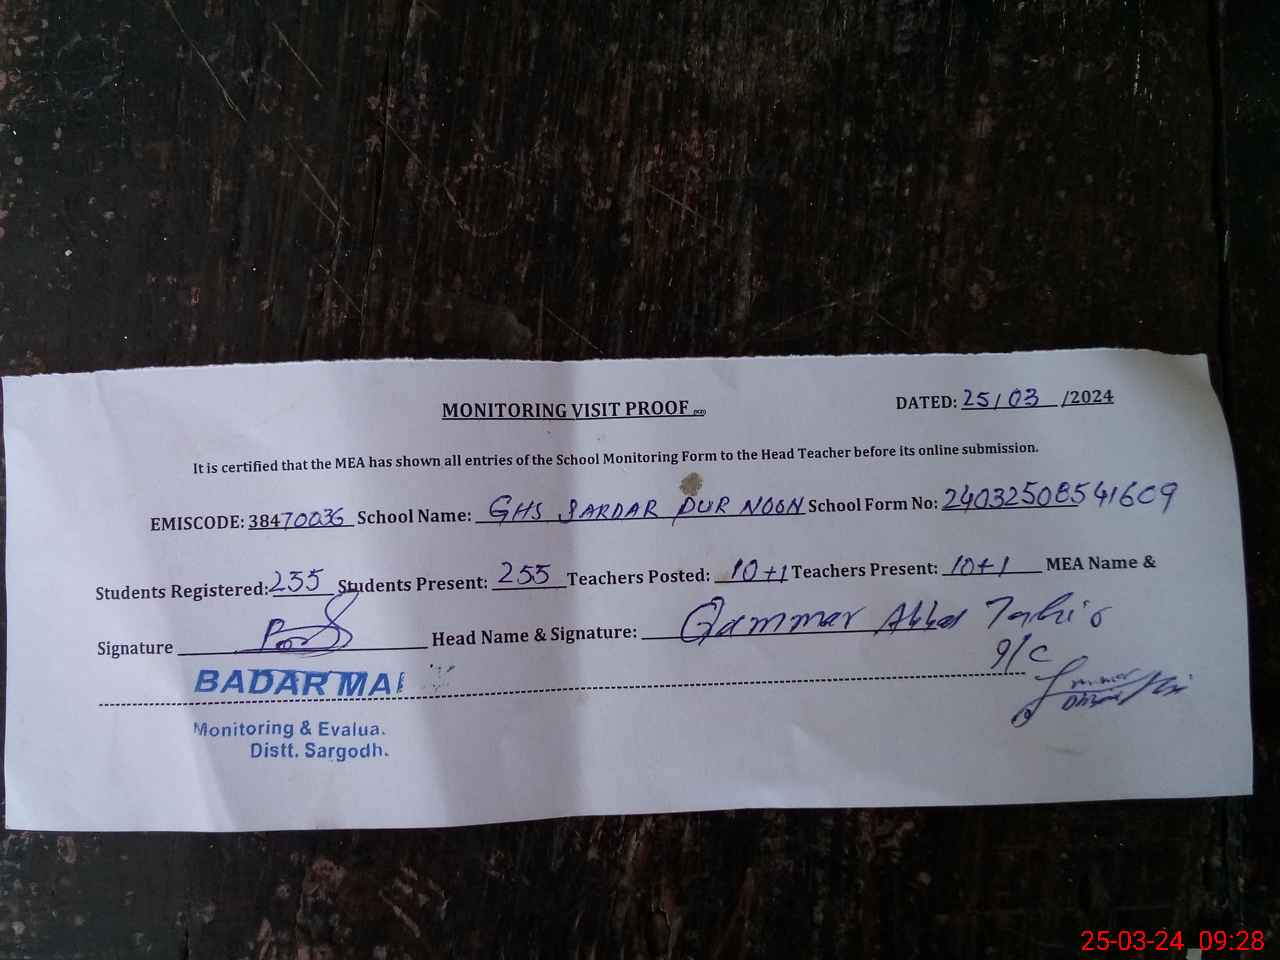 MONITORING VISIT PROOF
DATED: 25/03/2024
It is certified that the MEA has shown all entries of the School Monitoring Form to the Head Teacher before its online submission.
EMISCODE: 38470036 School Name: GHS SARDAR PUR NOON School Form No: 24032508541609
Students Registered: 255 Students Present: 255 Teachers Posted: 10+1 Teachers Present: 10+1 MEA Name &
Signature Head Name & Signature: Qammar Abbas
I/C
BADAR MA
Monitoring & Evalua.
Distt. Sargodh.
25-03-24 09:28